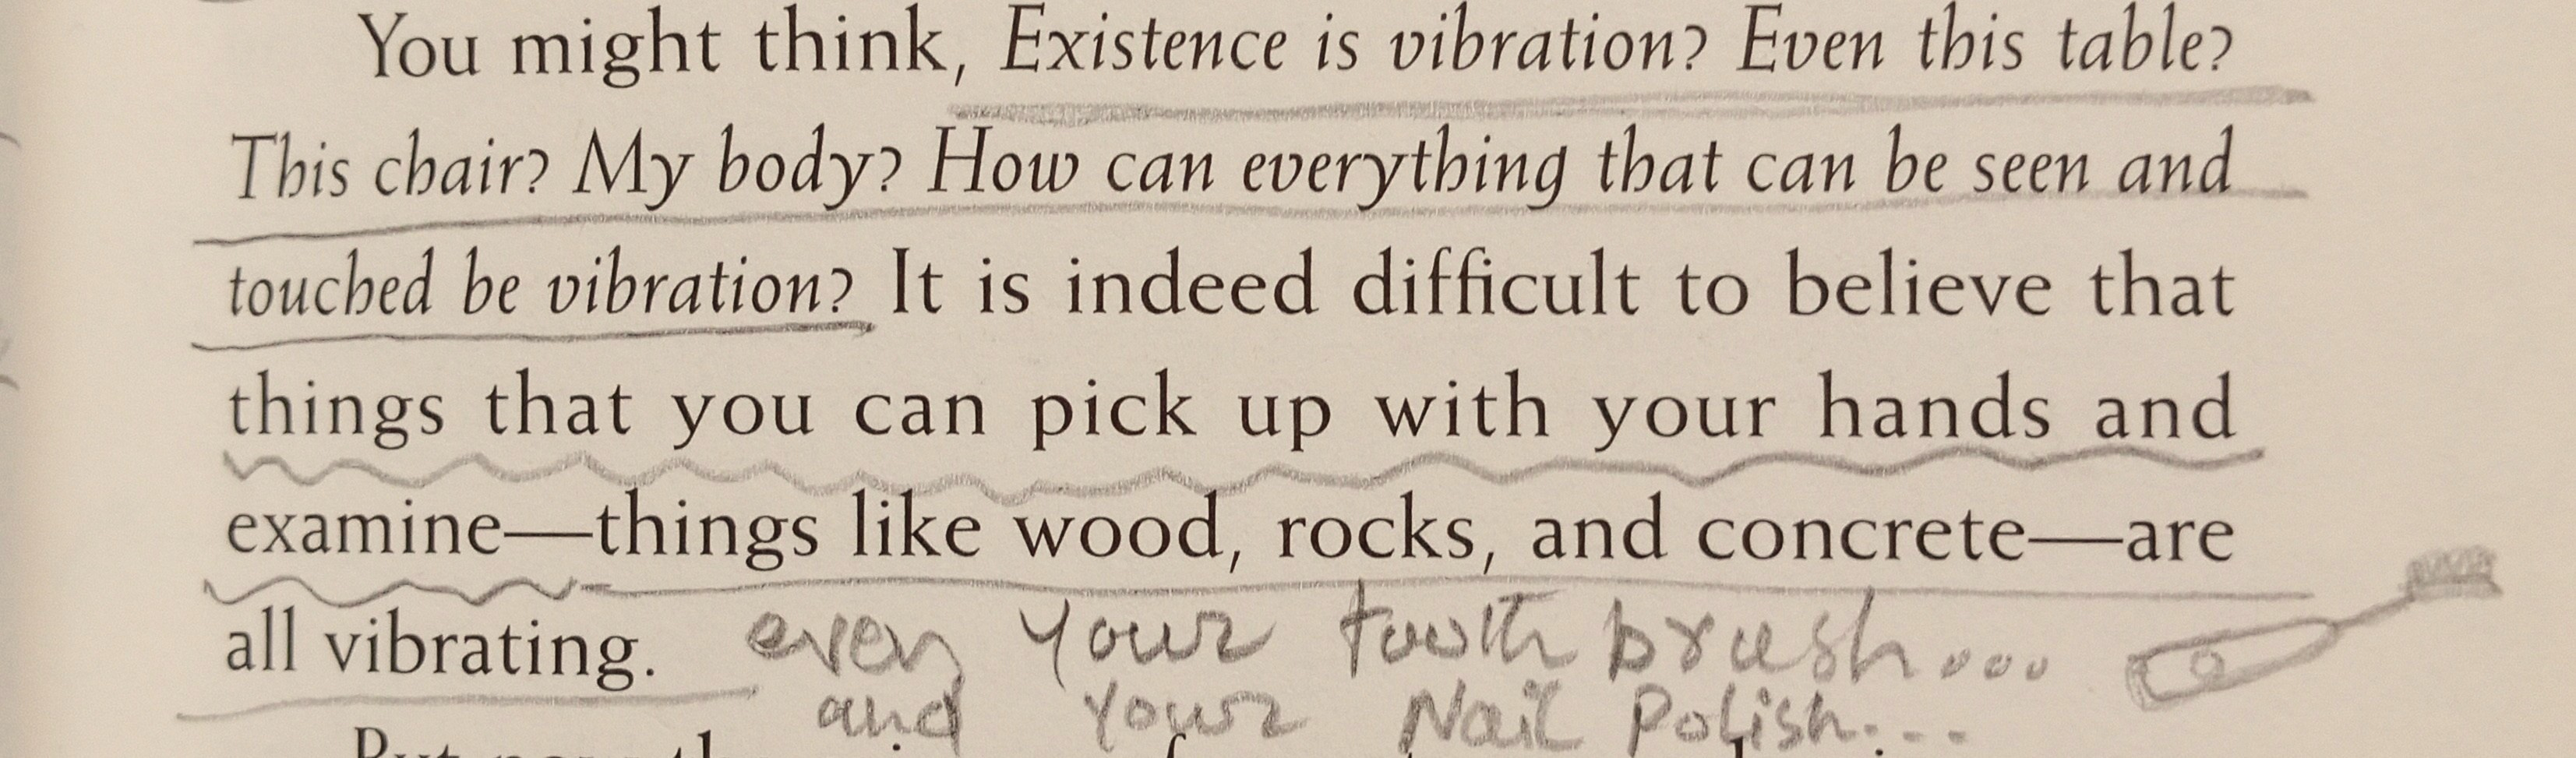 You might think, Existence is vibration? Even this table?
This chair? My body? How can everything that can be seen and
touched be vibration? It is indeed difficult to believe that
things that you can pick up with your hands and
examine—things like wood, rocks, and concrete—are
all vibrating. even your tooth brush...
and your Nail Polish...